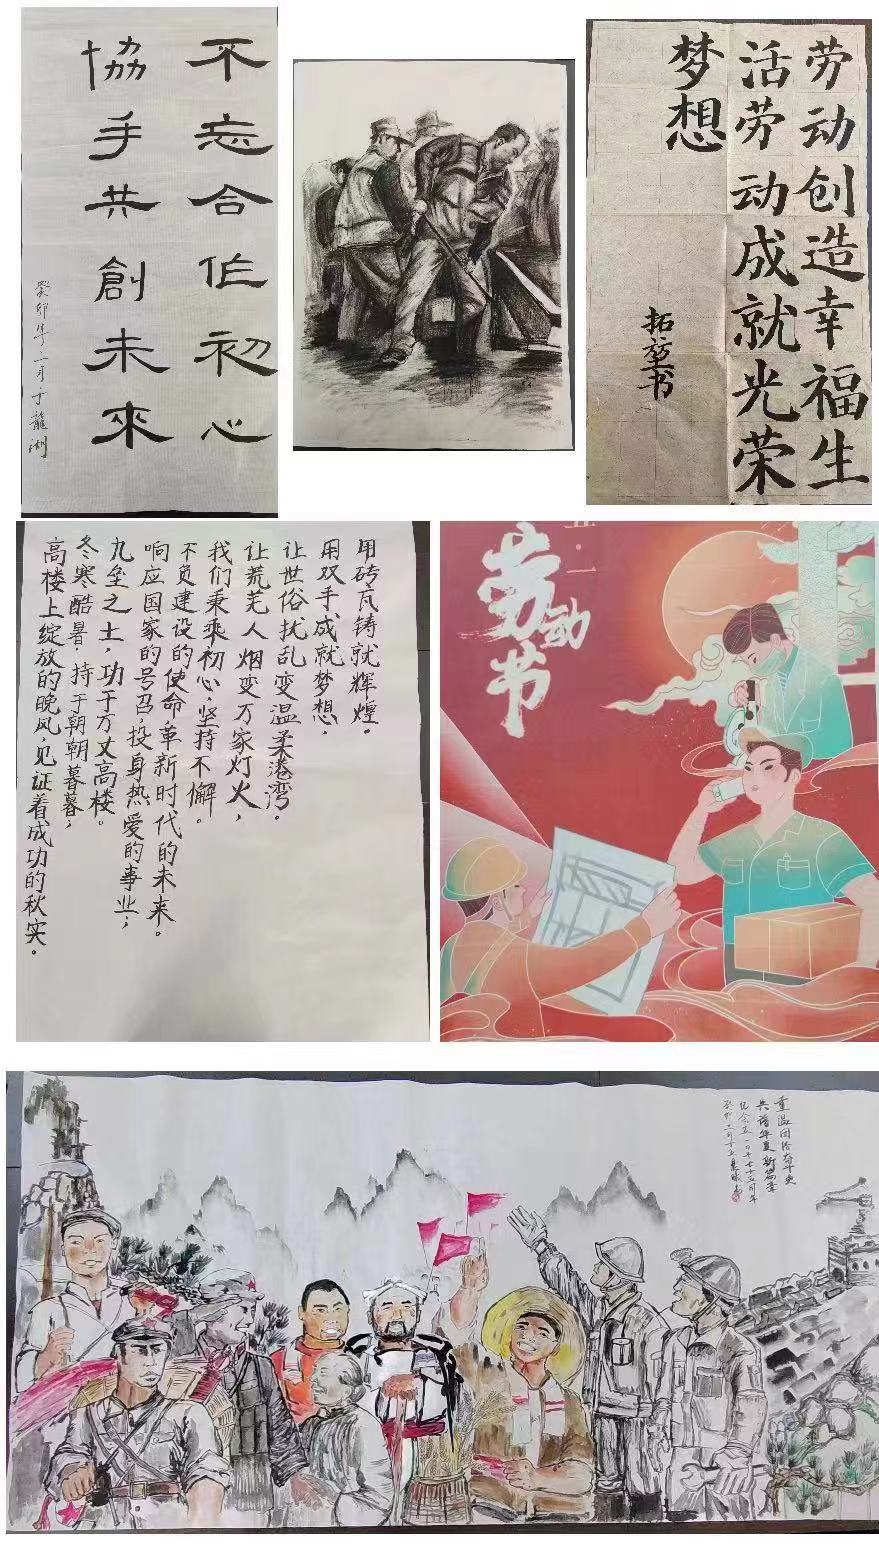 不忘合作初心
協手共創未來
癸卯年二月于龍湖
劳动创造幸福生
活劳动成就光荣
梦想
书
用砖瓦铸就辉煌。
用双手成就梦想，
让世俗扰乱变温柔港湾。
让荒芜人烟变万家灯火，
我们秉乘初心，坚持不懈。
不负建设的使命，革新时代的未来。
响应国家的号召，投身热爱的事业，
九垒之土，功于万丈高楼。
冬寒酷暑，持于朝朝暮暮，
高楼上绽放的晚风见证着成功的秋实。
五·一
劳动节
重温团结奋斗史
共谱华夏新篇章
纪念五一口号七十五周年
癸卯二月十五